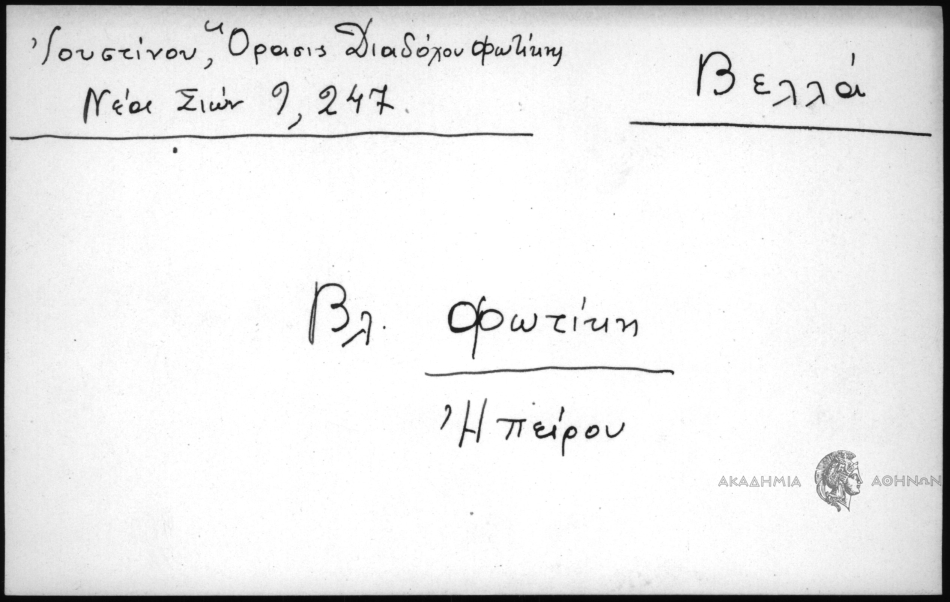 Ἰουστίνου, Ὅρασις Διαδόχου Φωτίκης
Νέα Σιών 9, 247.
Βελλά
Βλ. Φωτίκη
Ἠπείρου
ΑΚΑΔΗΜΙΑ ΑΘΗΝΩΝ